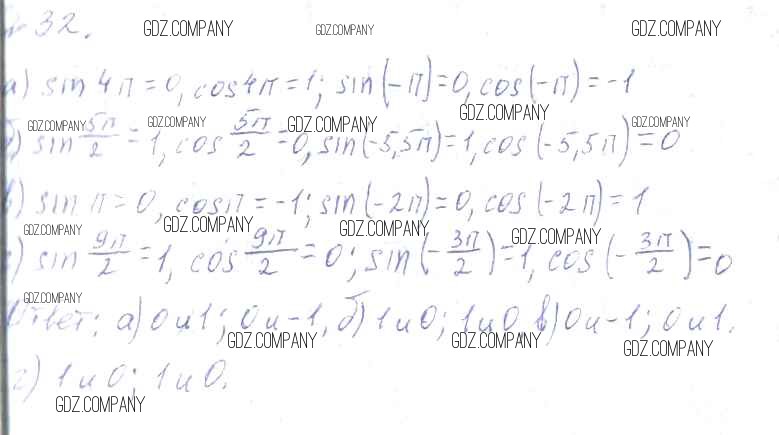 № 32. GDZ.COMPANY GDZ.COMPANY GDZ.COMPANY
а) sin 4π = 0, cos 4π = 1; sin(-π) = 0, cos(-π) = -1
GDZ.COMPANY
GDZ.COMPANY GDZ.COMPANY GDZ.COMPANY GDZ.COMPANY
б) sin 5π/2 = 1, cos 5π/2 = 0, sin(-5,5π) = 1, cos(-5,5π) = 0
в) sin π = 0, cos π = -1; sin(-2π) = 0, cos(-2π) = 1
GDZ.COMPANY GDZ.COMPANY GDZ.COMPANY GDZ.COMPANY
г) sin 9π/2 = 1, cos 9π/2 = 0; sin(-3π/2) = 1, cos(-3π/2) = 0
GDZ.COMPANY
Ответ: а) 0 и 1; 0 и -1, б) 1 и 0; 1 и 0, в) 0 и -1; 0 и 1.
GDZ.COMPANY GDZ.COMPANY GDZ.COMPANY
г) 1 и 0; 1 и 0.
GDZ.COMPANY